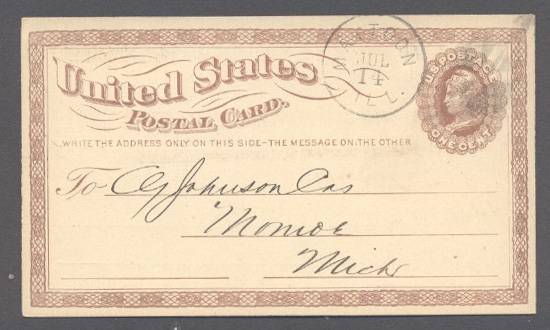 United States
Postal Card.
WRITE THE ADDRESS ONLY ON THIS SIDE–THE MESSAGE ON THE OTHER
MATTOON
JUL
14
ILL.
U.S. POSTAGE
ONE CENT
To Johnson
Monroe
Mich